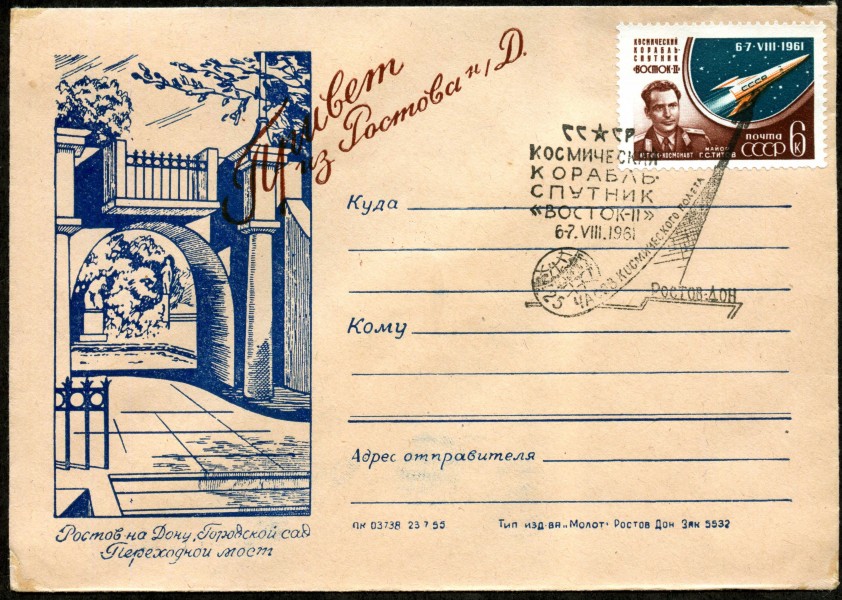 Привет
из Ростова н/Д.
КОСМИЧЕСКИЙ
КОРАБЛЬ-
СПУТНИК
«ВОСТОК-II»
6-7·VIII·1961
СССР
ЛЕТЧИК-КОСМОНАВТ
МАЙОР
Г.С.ТИТОВ
почта
СССР 6к
СС★СР
КОСМИЧЕСКИЙ
КОРАБЛЬ-
СПУТНИК
«ВОСТОК-II»
6-7.VIII.1961
25 ЧАСОВ КОСМИЧЕСКОГО ПОЛЕТА
РОСТОВ-ДОН
Куда
Кому
Адрес отправителя
ПК 03738 23 7 55 Тип изд-ва „Молот" Ростов Дон Зак 5532
Ростов на Дону, Городской сад
Переходной мост